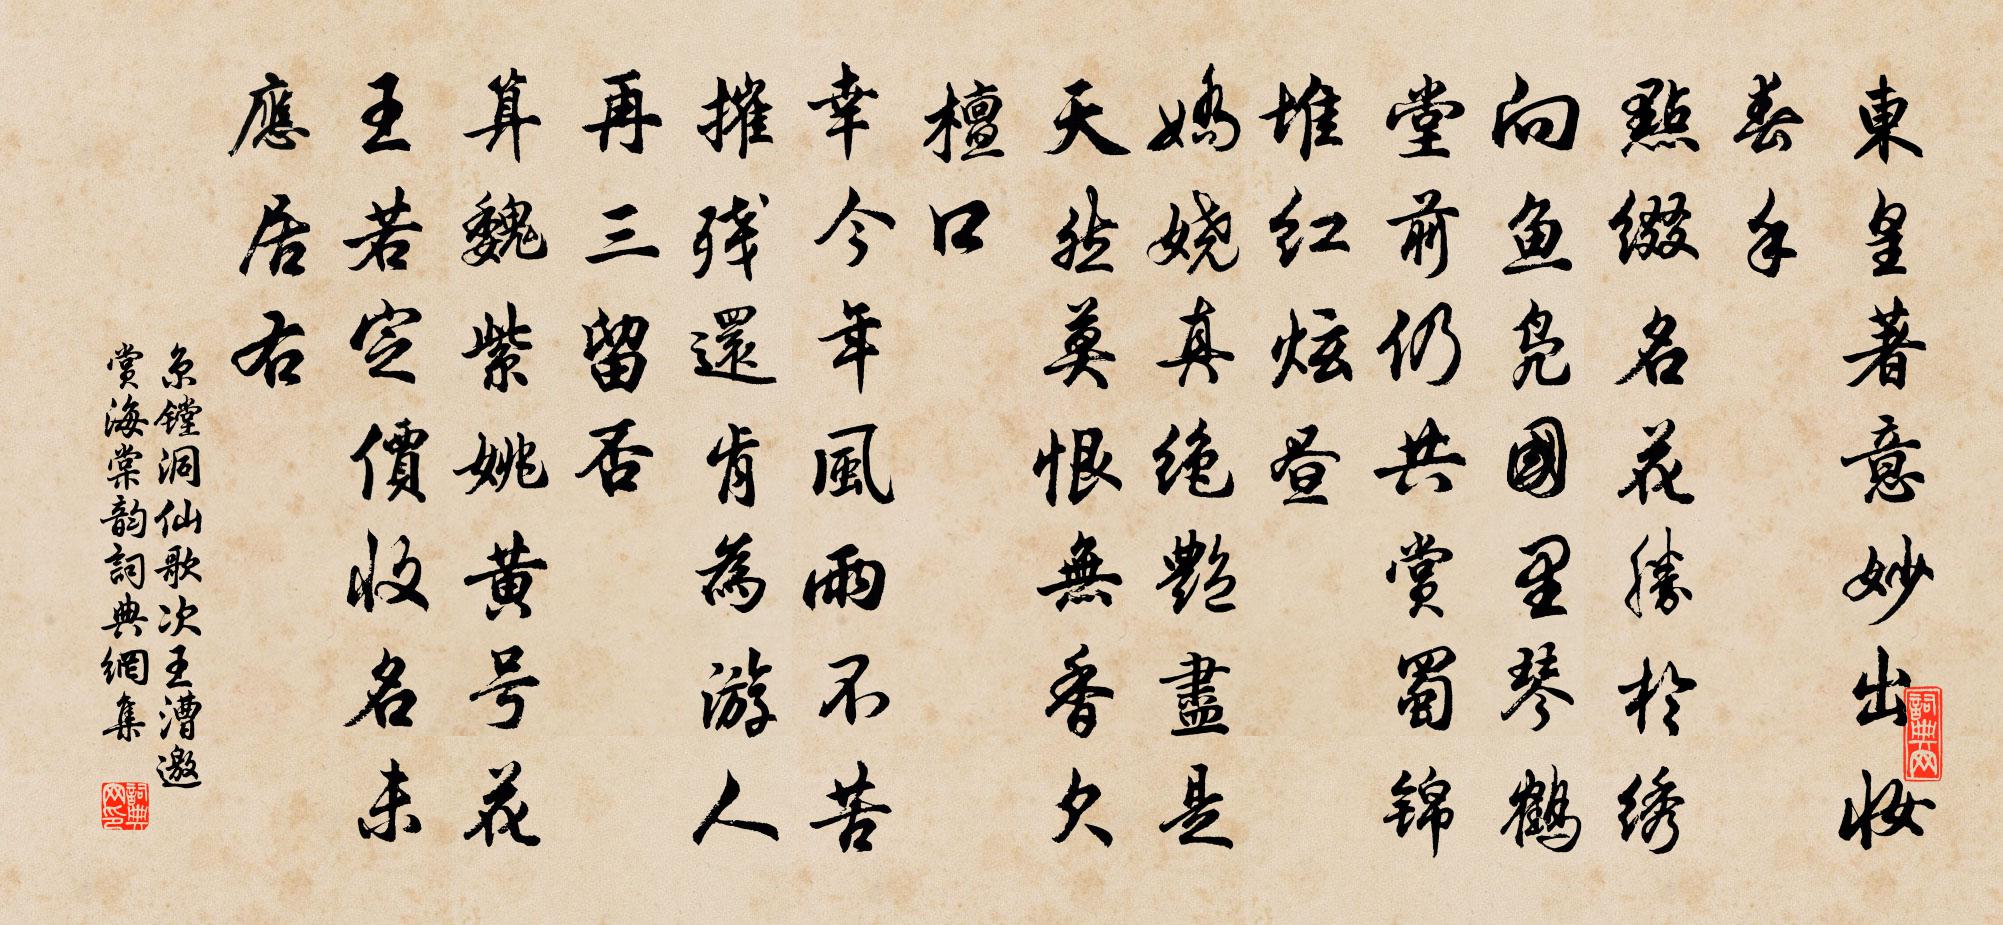 東皇著意妙出妝
春手
點綴名花勝於绣
向魚凫國里琴鶴
堂前仍共赏蜀锦
堆红炫昼
嬌娆真绝艷盡是
天然莫恨無香欠
檀口
幸今年風雨不苦
摧残還肯為游人
再三留否
算魏紫姚黄号花
王若定價收名未
應居右
京镗洞仙歌次王漕邀
赏海棠韵詞典網集
詞典网
詞典网印